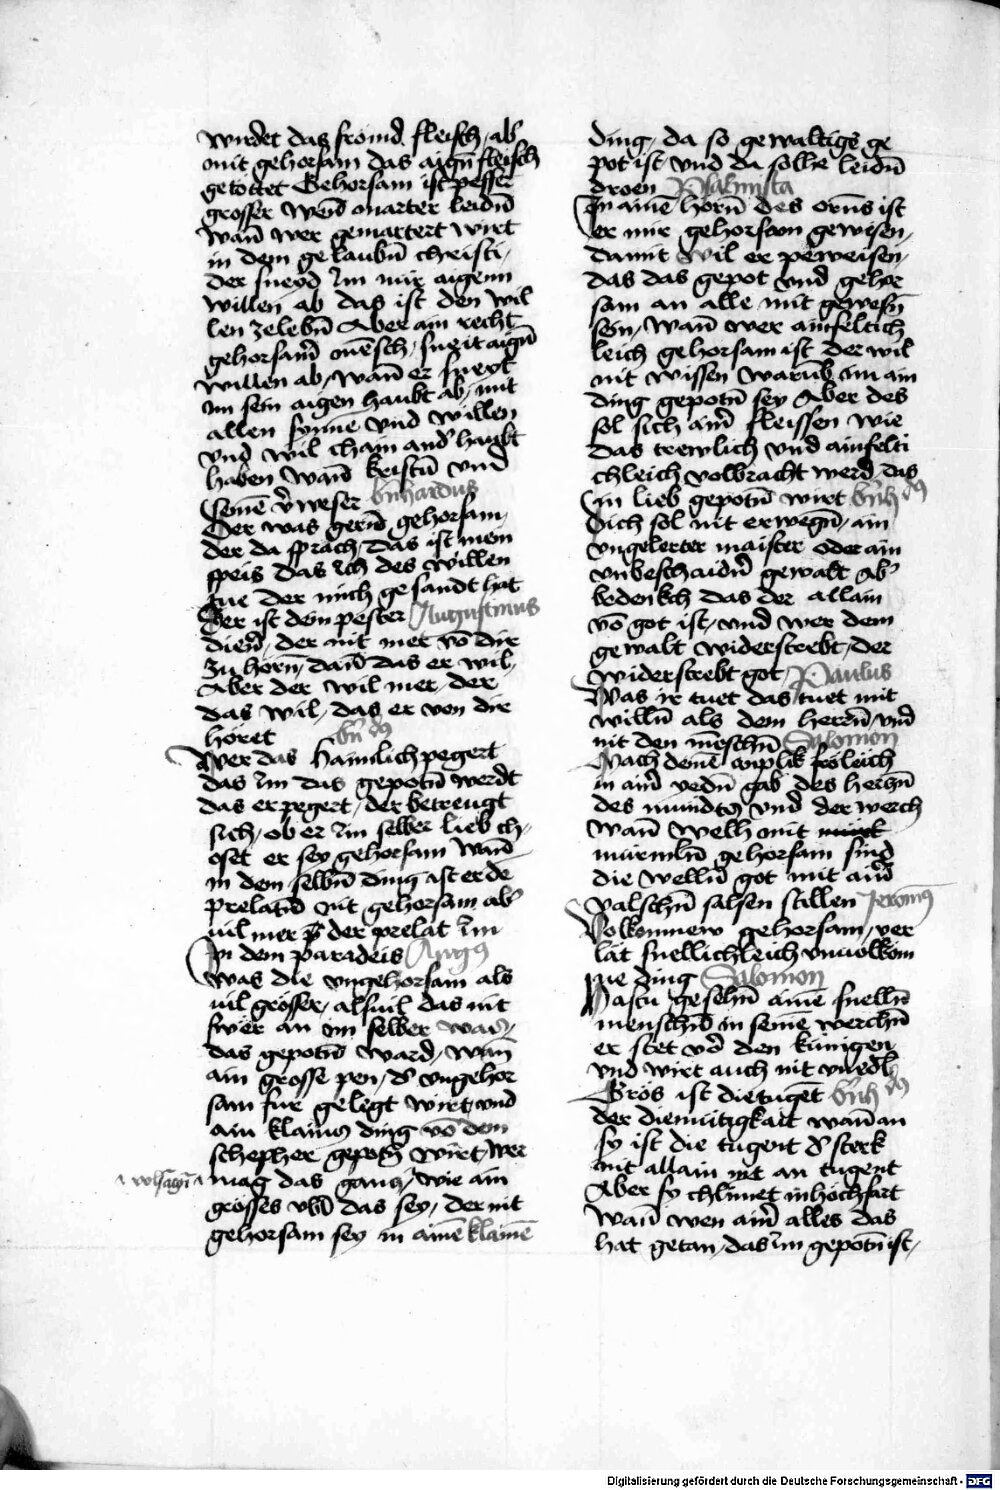 wirdet das frömd fleisch, ab'
mit gehorsam das aign̄ fleisch
getöttet Gehorsam ist pesser
grosser wen̄ marter leidn̄
wan̄ wer gemartert wirt
in dem gelaubn̄ christi,
der sneyd im nür aigenn
willen ab das ist den wil
len zelebn̄ Aber ain recht
gehorsam̄ mēsch, sneit aign̄
willen ab, wan̄ er sneyt
im sein aigen haubt ab, mit
allen synnē vnd willen
vnd wil chain and' haubt
haben wan̄ kristū vnd
seinē v'weser b'nhardus
Der was gern̄ gehorsam,
der da sprach, das ist mein
speis das ich des willen
tue der mich gesandt hat
Der ist dein pester Augustinus
dien', der nit mer vō dir
zu hörn, dan̄ das er wil,
Aber der wil mer, der
das wil, das er von dir
höret b'n d9
Wer das haimlich pegert
das im das gepotn̄ werdt
das er pegert, der betreugt
sich, ob er im selber lieb ch,
oset er sey gehorsam wan̄
in dem selbn̄ ding ist er dē
prelatn̄ nit gehorsam ab'
vil mer der prelat im
In dem paradeis Augꝰ
was die vngehorsam als
vil grösser, alsuil das nit
swër an im selber was,
das gepotn̄ ward, wan̄
ain grosse pen, d' vngehor
sam für gelegt wirt, vnd
ain klains ding vō dem
schepher gepotn̄ wirt, wer
mag das gancz, wie ain
grosses vbl das sey, der nit
gehorsam sey in ainē klainē
ding, da so gewaltigs ge
pot ist vnd da solhe leidn̄
droen Psalmista
In ainē hörn̄ des orn̄s ist
er mir gehorsam gewesen,
damit wil er peweisen,
das das gepot vnd gehor
sam an alle mit gewesn̄
sein, wan̄ wer ainfeltich
leich gehorsam ist der wil
nit wissen warūb im ain
ding gepotn̄ sey Aber des
sol sich ain' fleissen wie
das trewlich vnd ainfelti
chleich volbracht werd, das
in lieb gepotn̄ wirt b'nh d9
Dich sol nit erwegn̄, ain
vngelerter maister oder ain
vnbeschaidn' gewalt Ab'
bedenkch das der allain
vō got ist, vnd wer dem
gewalt widerstrebt, der
widerstrebt got, Paulus
Was ir tuet das, tuet mit
willn̄ als dem herrn̄, vnd
nit den mēschn̄ Salomon
Nach deinē anplik fröleich
in ain' yedn̄ gab des herczn̄
des mundes vnd der werch
wan̄ welh mit
mürmeln̄ gehorsam sind
die welln̄ got mit ain'
valschn̄ salsen stillen Jeronimꝰ
Volkomnew gehorsam, ver
lat snellichleich vnuolkom
ne ding Salomon
Hastu gesehn̄ ainē snelln̄
menschn̄ in seinē werchn̄
er stet vor den künigen
vnd wirt auch nit vnedl
Gros ist die tugēt b'nh d9
der diemütigkait wan̄ an
sy ist die tugent d' sterk
nit allain nit an tugent
Aber sy chlimet in hochfart
wan̄ wen ain' alles das
hat getan, das im gepotn̄ ist,
Digitalisierung gefördert durch die Deutsche Forschungsgemeinschaft - DFG